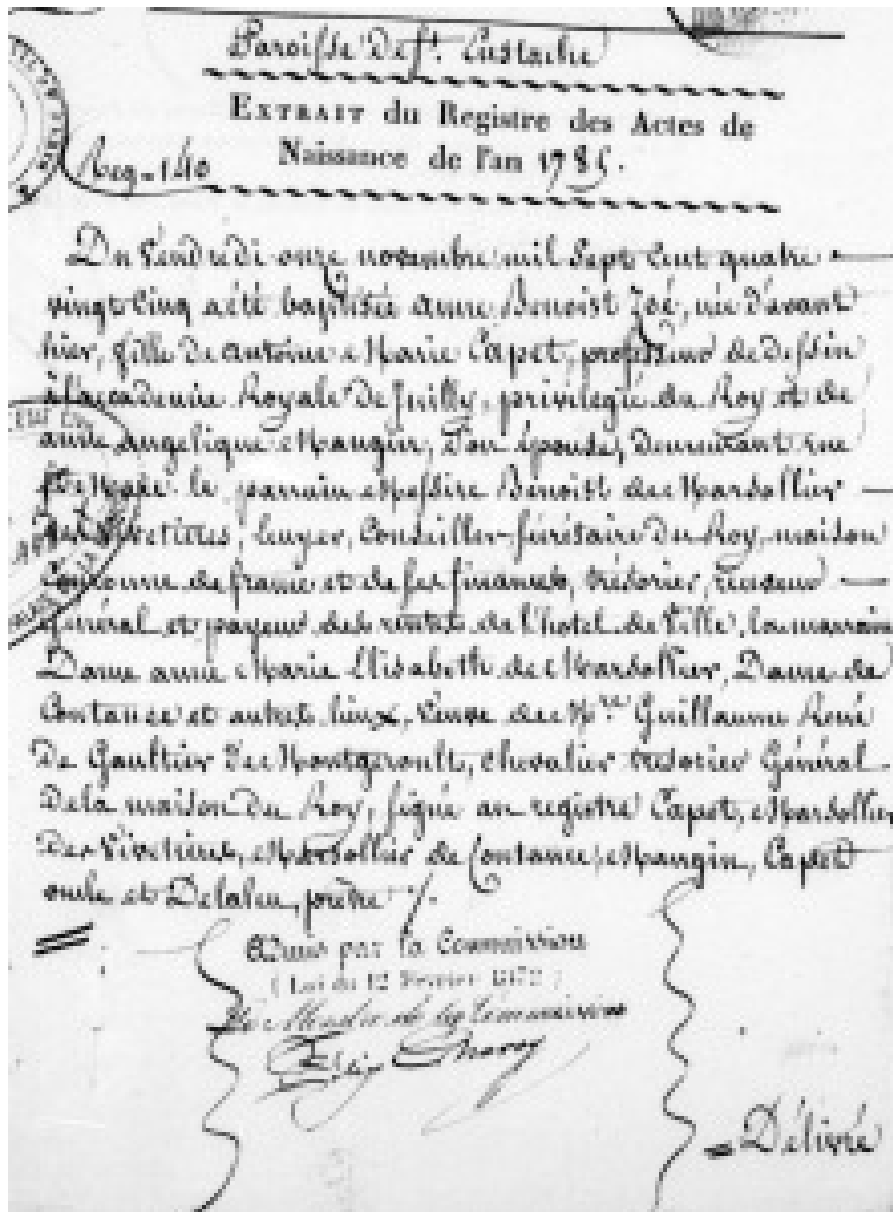 Paroisse de St. Eustache
EXTRAIT du Registre des Actes de
Naissance de l'an 1785.
Reg-140
Du Vendredi onze novembre mil Sept Cent quatre
vingt Cinq a été baptisée Anne Benoist Zoé, née d'avant
hier, fille de Antoine Marie Capet, professeur de dessin
à l'accadémie Royale de Juilly, privilégié du Roy et de
anne angelique Mangin, Son épouse, demeurant rue
le parrain Messire Benoist de Marsollier
des Vivetieres, Ecuyer, Conseiller-secrétaire du Roy, maison
Couronne de france et de ses finances, trésorier, receveur
général et payeur des rentes de l'hotel de Ville, la marraine
Dame anne Marie Elisabeth de Marsollier, Dame de
Contance et autres lieux, Veuve de Mre Guillaume René
De Gaultier De Montgeroult, chevalier trésorier Général
De la maison du Roy, signé au registre Capet, Marsollier
Des Vivetieres, Marsollier de Contance, Mangin, Capet
oncle et Delaleu, prêtre
Admis par la Commission
(Loi du 12 Février 1872)
Le Membre de la Commission
Délivré